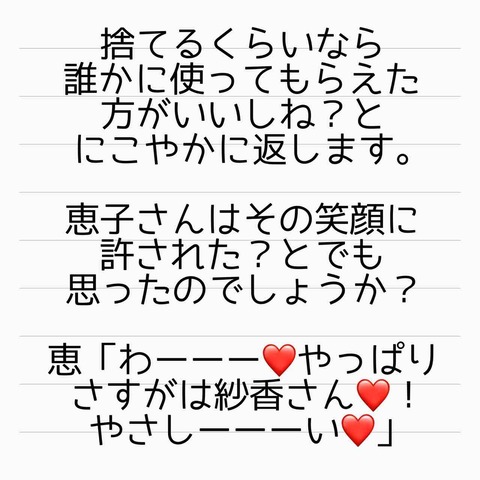 捨てるくらいなら
誰かに使ってもらえた
方がいいしね？と
にこやかに返します。
恵子さんはその笑顔に
許された？とでも
思ったのでしょうか？
恵「わーーー❤️やっぱり
さすがは紗香さん❤️！
やさしーーーい❤️」